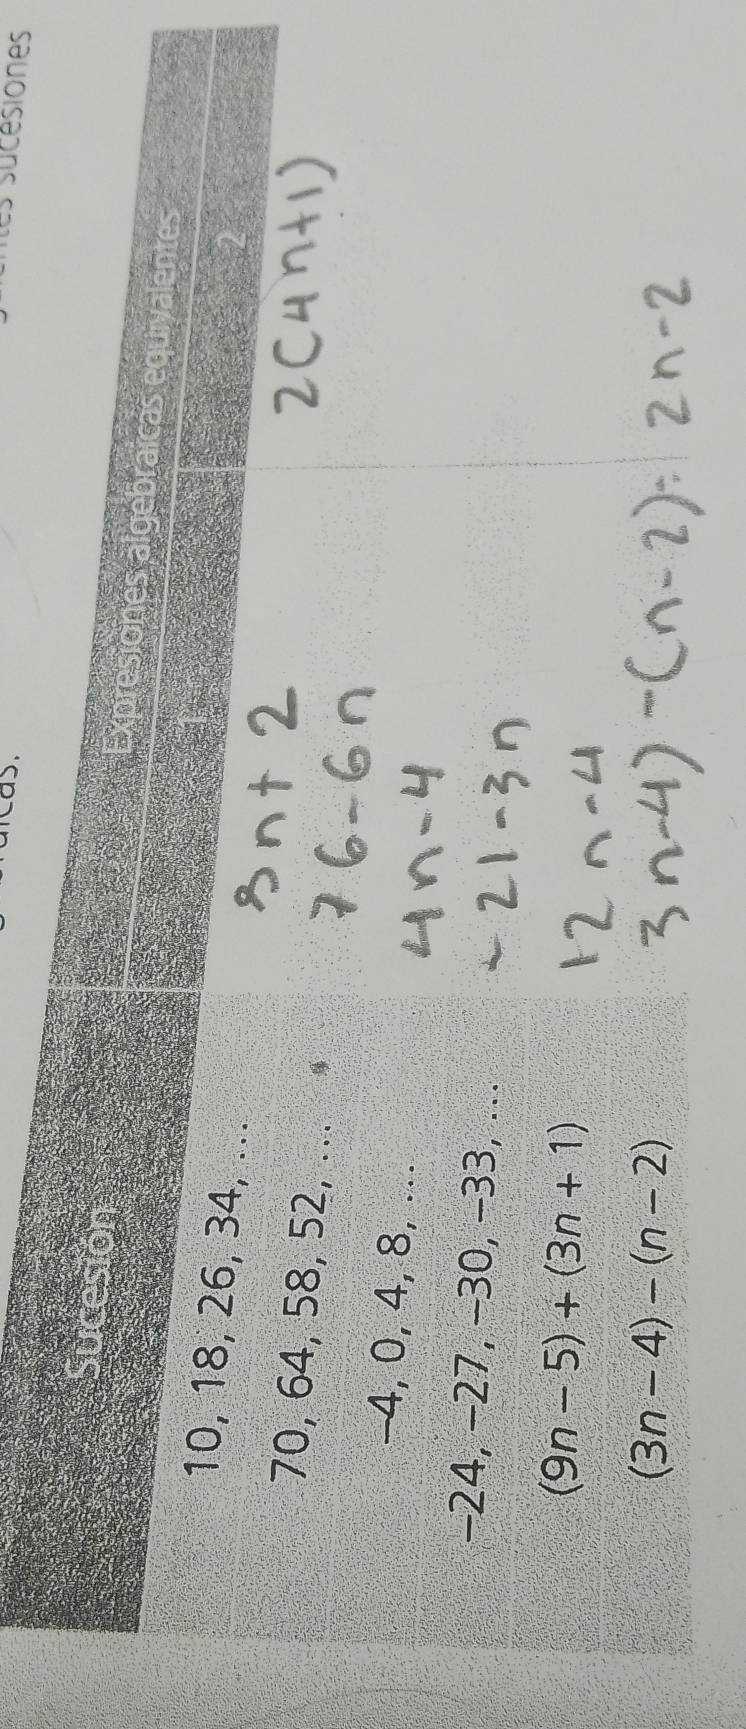 sucesiones
Sucesión Expresiones algebraicas equivalentes
1 2
10, 18, 26, 34, ... 8n+2 2(4n+1)
70, 64, 58, 52, .... 76-6n
-4, 0, 4, 8, .... 4n-4
-24, -27, -30, -33, ... -21-3n
(9n - 5) + (3n + 1) 12n-4
(3n - 4) - (n - 2) 3n-4)-(n-2)= 2n-2